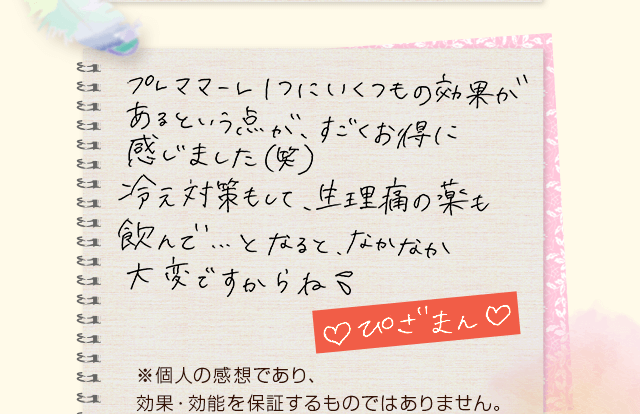 プレママーレ1つにいくつもの効果が
あるという点が、すごくお得に
感じました(笑)
冷え対策もして、生理痛の薬も
飲んで…となると、なかなか
大変ですからね♪
♡ぴざまん♡
※個人の感想であり、
効果・効能を保証するものではありません。